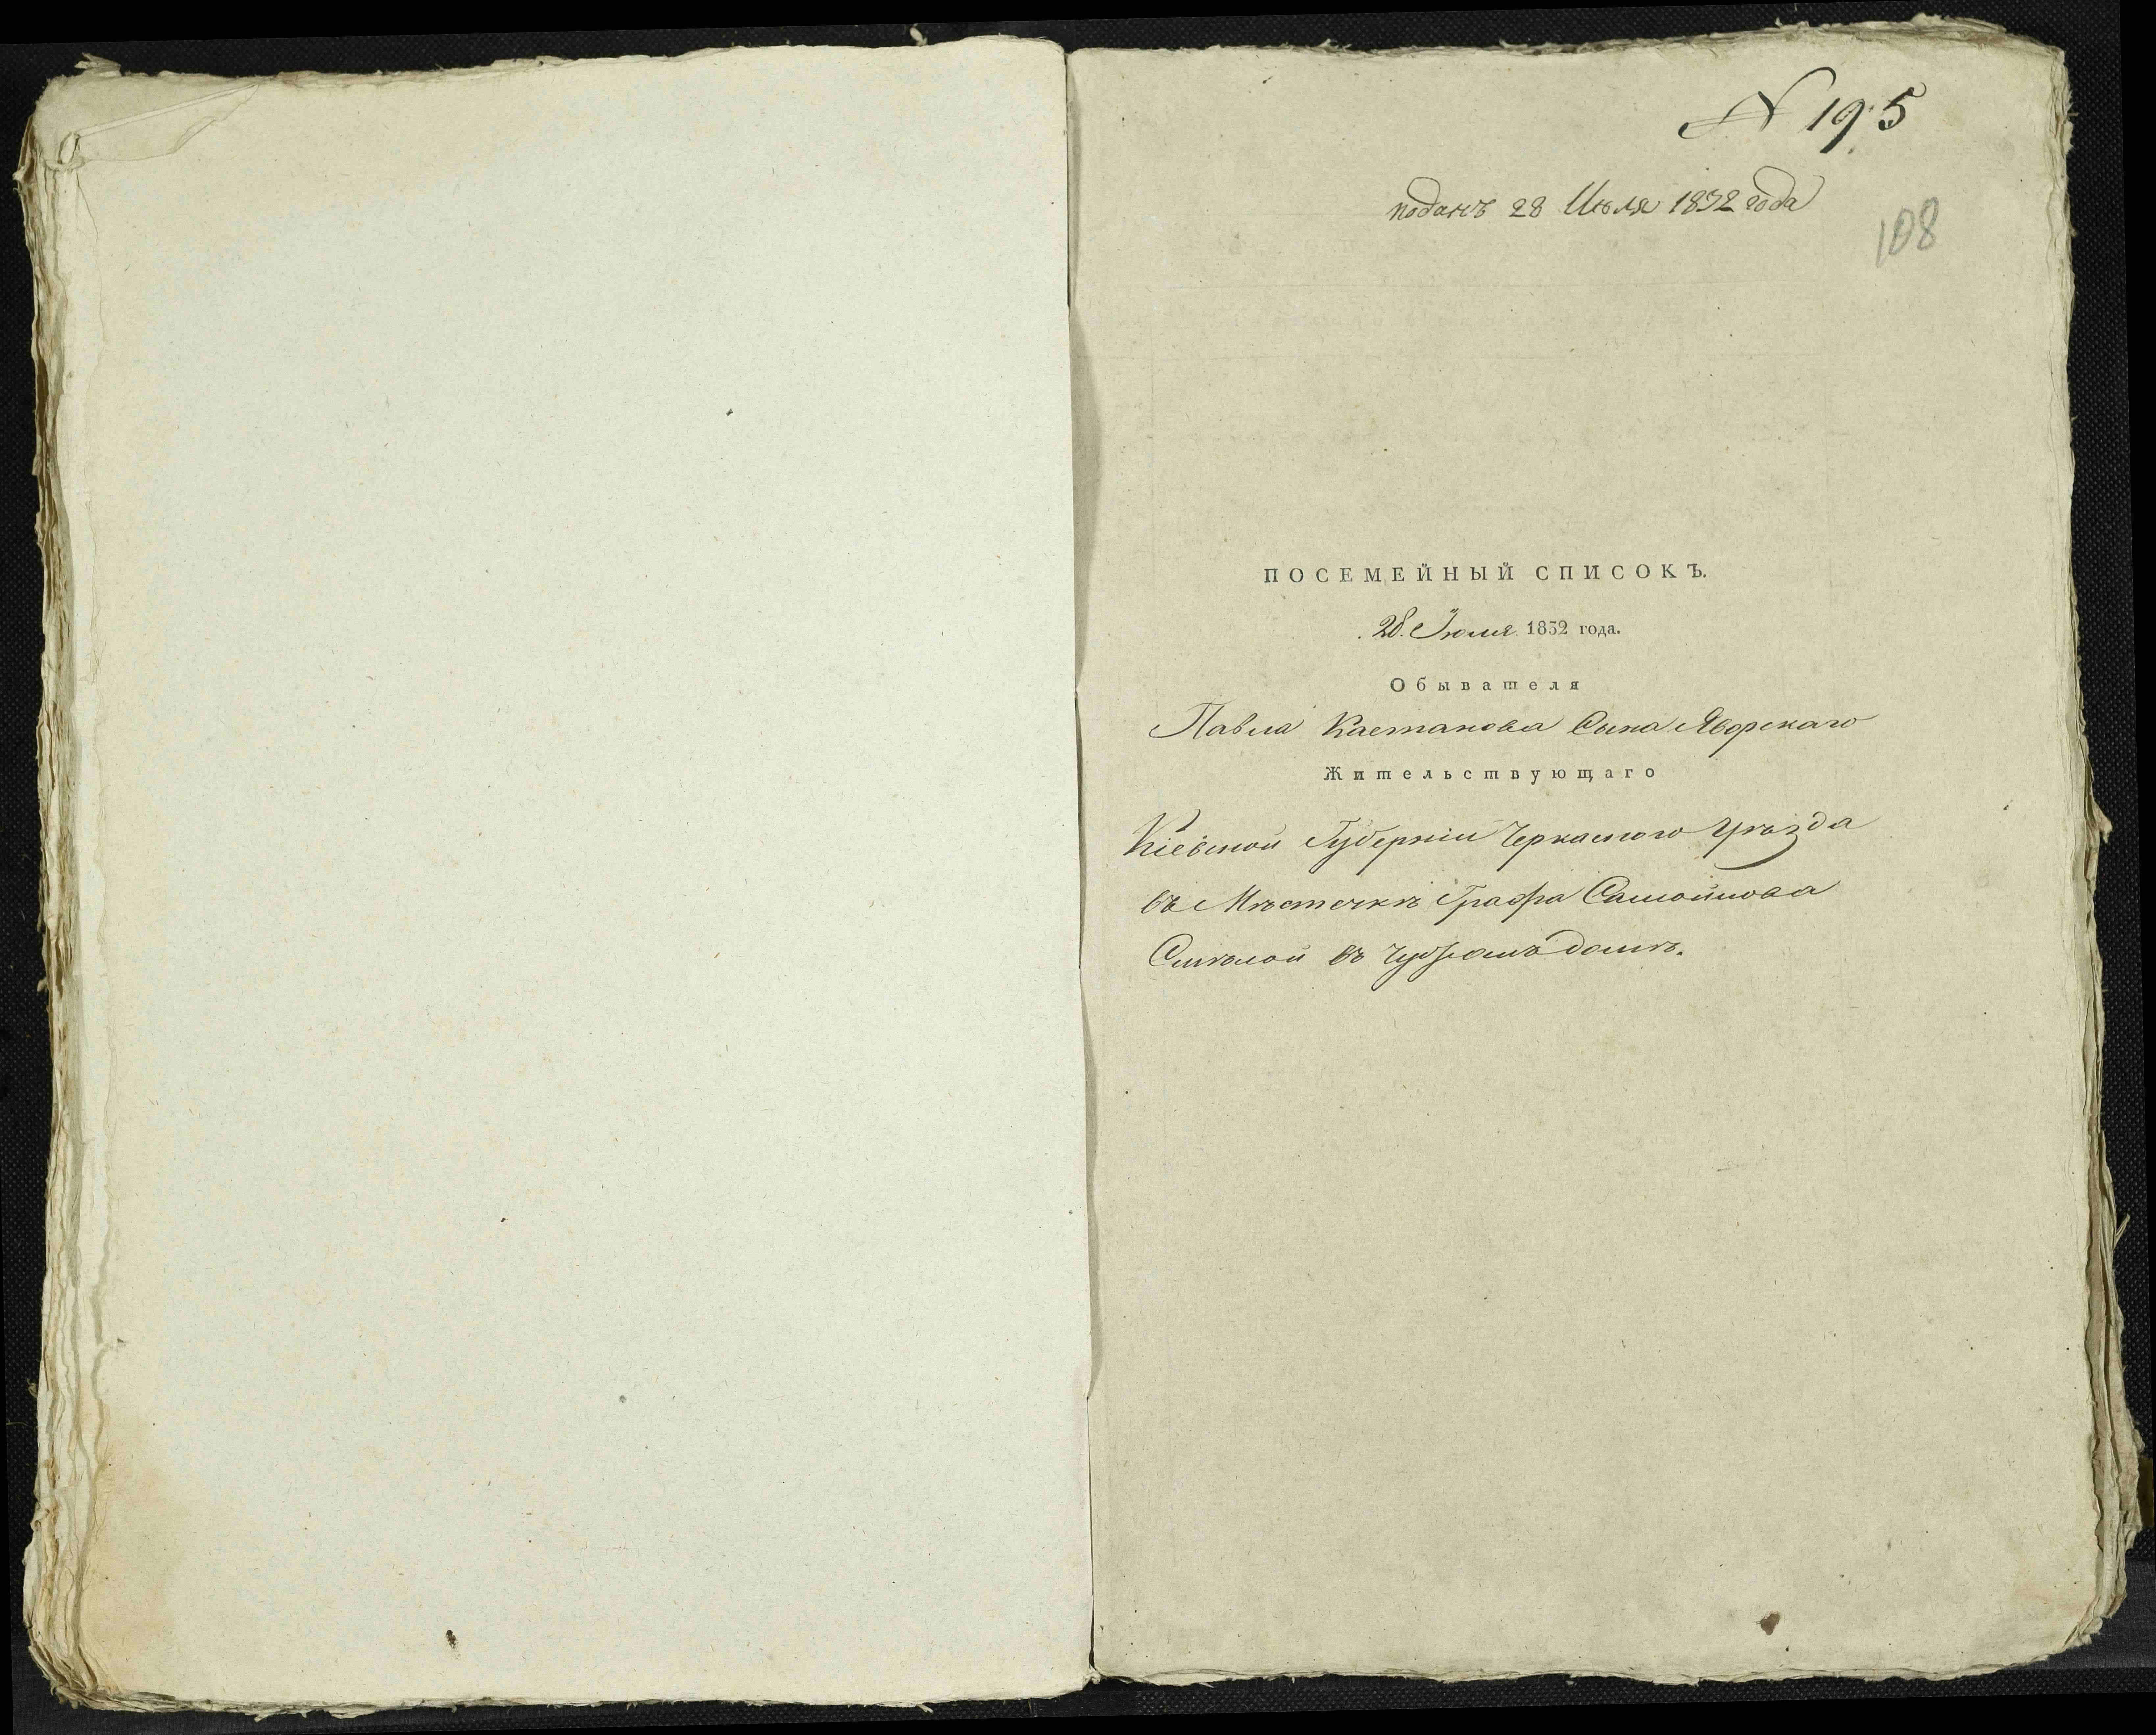 N 195
поданъ 28 Июля 1832 года
108
ПОСЕМЕЙНЫЙ СПИСОКЪ.
28. Июля 1832 года.
Обывателя
Павла Каетанова Сына Яворскаго
Жительствующаго
Кіевской Губерніи Черкаского Уѣзда
въ Мѣстечкѣ Графа Самойлова
Смѣлой въ чужомъ домѣ.